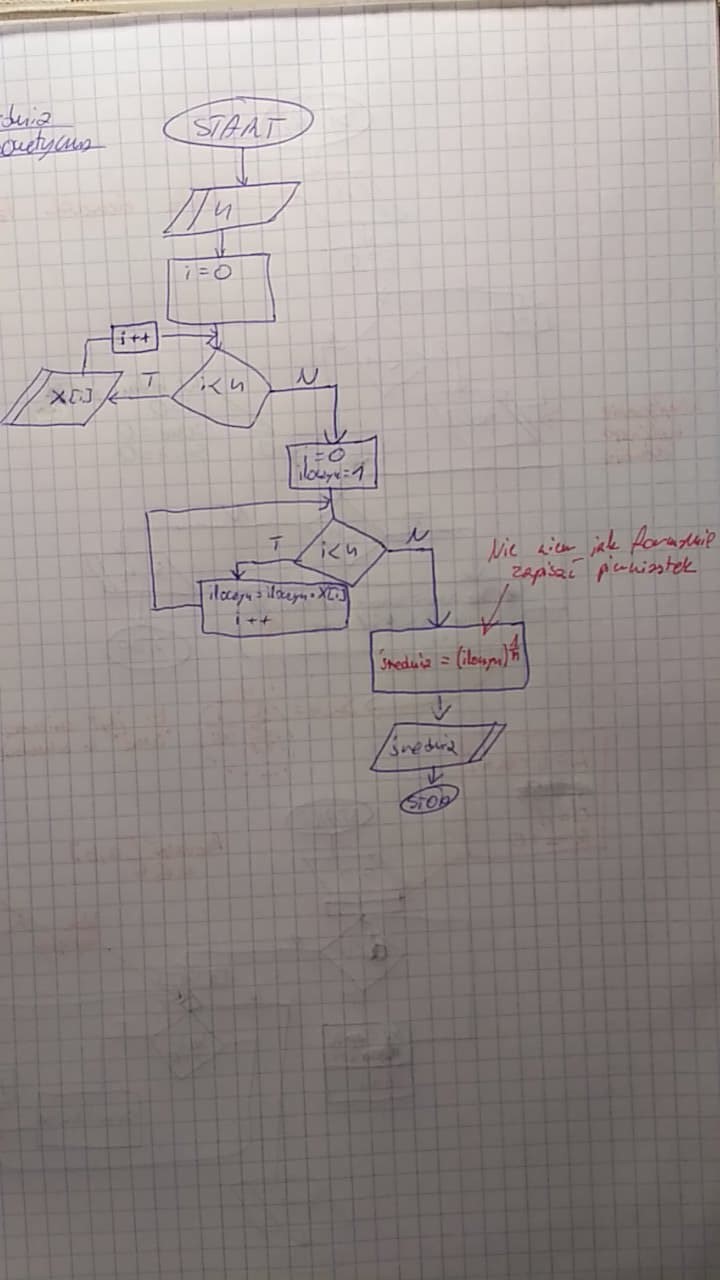 START
n
i=0
i++
X[i]
T
i<n
N
i=0
iloczyn=1
T
i<n
N
iloczyn=iloczyn*X[i]
i++
Nie wiem jak formalnie
zapisać pierwiastek
średnia = (iloczyn)^1/n
średnia
STOP